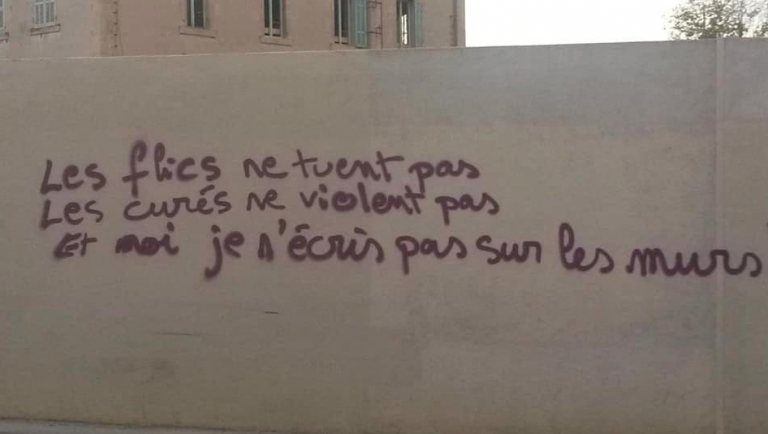 Les flics ne tuent pas
Les curés ne violent pas
Et moi je n'écris pas sur les murs